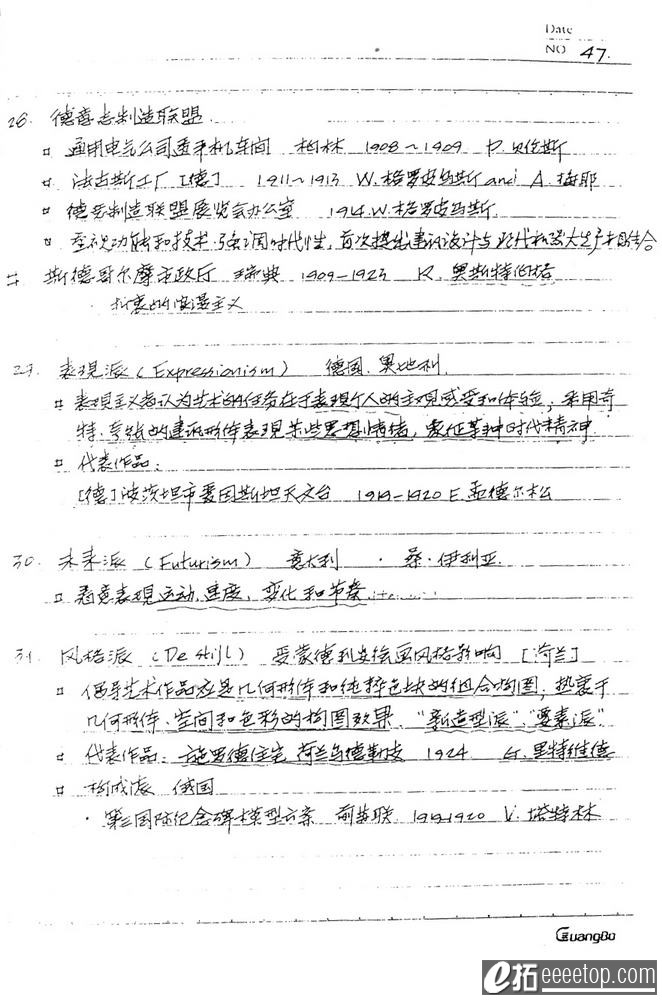 Date
NO 47.
28. 德意志制造联盟.
通用电气公司透平机车间 柏林 1908~1909 P.贝伦斯
法古斯工厂 [德] 1911~1913 W.格罗皮乌斯 and A.梅耶
德意制造联盟展览会办公室 1914.W.格罗皮乌斯.
重视功能和技术.强调时代性,首次提出建筑设计与现代机器大生产相结合
斯德哥尔摩市政厅 瑞典 1909-1923 R.奥斯特伯格
折衷的浪漫主义
29. 表现派 (Expressionism) 德国.奥地利.
表现主义者认为艺术的任务在于表现个人的主观感受和体验,采用奇
特.夸张的建筑形体表现某些思想情绪,象征某种时代精神.
代表作品:
[德]波茨坦市爱因斯坦天文台 1919-1920 E.孟德尔松
30. 未来派 (Futurism) 意大利 · 桑·伊利亚.
着意表现运动,速度,变化和节奏
31. 风格派 (De stijl) 受蒙德利安绘画风格影响 [荷兰]
倡导艺术作品应是几何形体和纯粹色块的组合构图,热衷于
几何形体.空间和色彩的构图效果."新造型派""要素派"
代表作品:施罗德住宅 荷兰乌德勒支 1924 G.里特维德
构成派 俄国
· 第三国际纪念碑模型方案 前苏联 1919-1920 V.塔特林
GuangBo
e拓 eeeetop.com